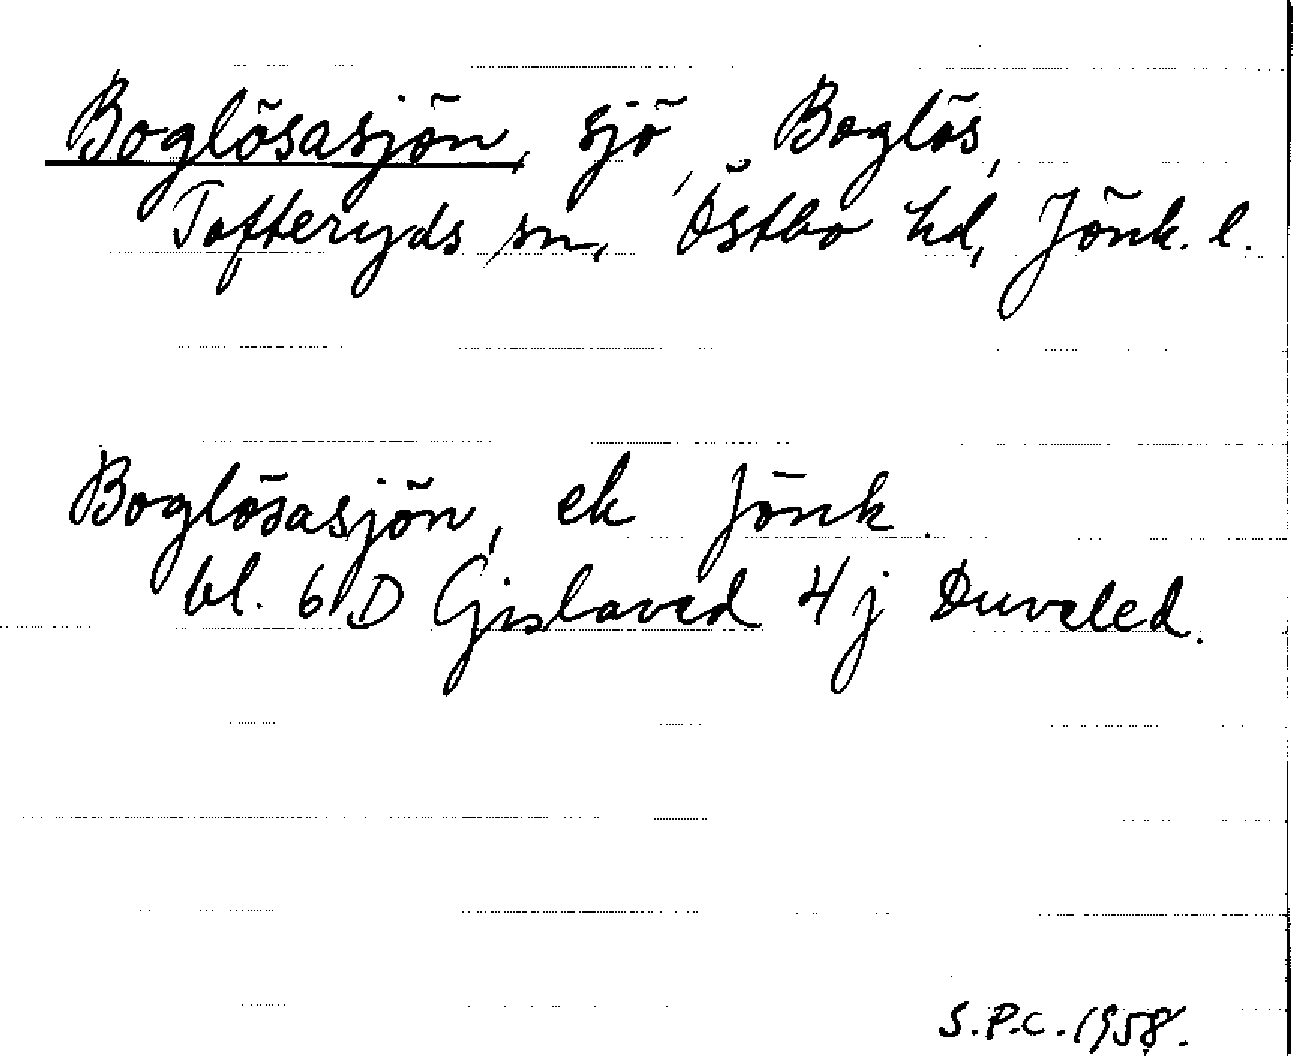 Boglösasjön, sjö, Boglös,
Tofteryds sn, Östbo hd, Jönk. l.
Boglösasjön, ek Jönk.
bl. 6 D Gislaved 4 j Duveled.
S.P.C. 1958.